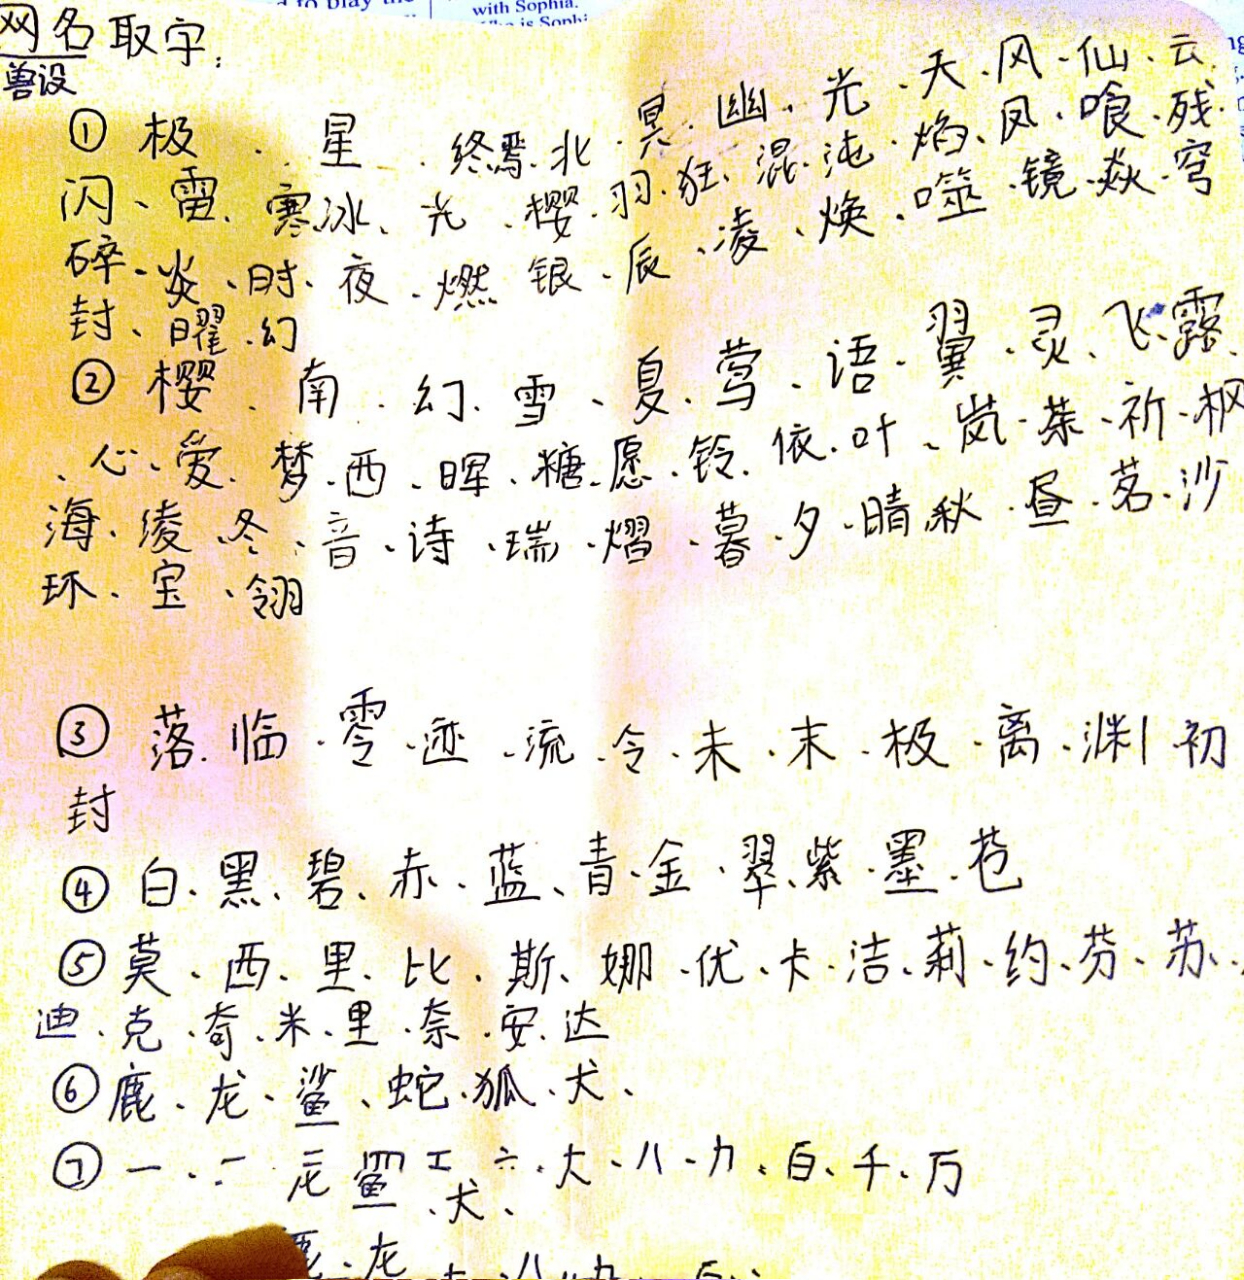 d to play the
with Sophia.
网名取字：
兽设
① 极、星、终焉、北、冥、幽、光、天、风、仙、云
闪、雷、寒冰、光、樱、羽、狂、混沌、焰、凤、喰、残
碎、炎、时、夜、燃、银、辰、凌、焕、噬、镜、焱、穹
封、曜、幻
② 樱、南、幻、雪、夏、莺、语、翼、灵、飞、露、
、心、爱、梦、西、晖、糖、愿、铃、依、叶、岚、茶、祈、枫
海、绫、冬、音、诗、瑞、熠、暮、夕、晴、秋、昼、茗、沙
环、宝、翎
③ 落、临、零、迹、流、令、未、末、极、离、渊、初
封
④ 白、黑、碧、赤、蓝、青、金、翠、紫、墨、苍
⑤ 莫、西、里、比、斯、娜、优、卡、洁、莉、约、芬、苏、
迪、克、奇、米、里、奈、安、达
⑥ 鹿、龙、鲨、蛇、狐、犬、
⑦ 一、二
六、大、八、九、百、千、万
犬、
龙
八、九